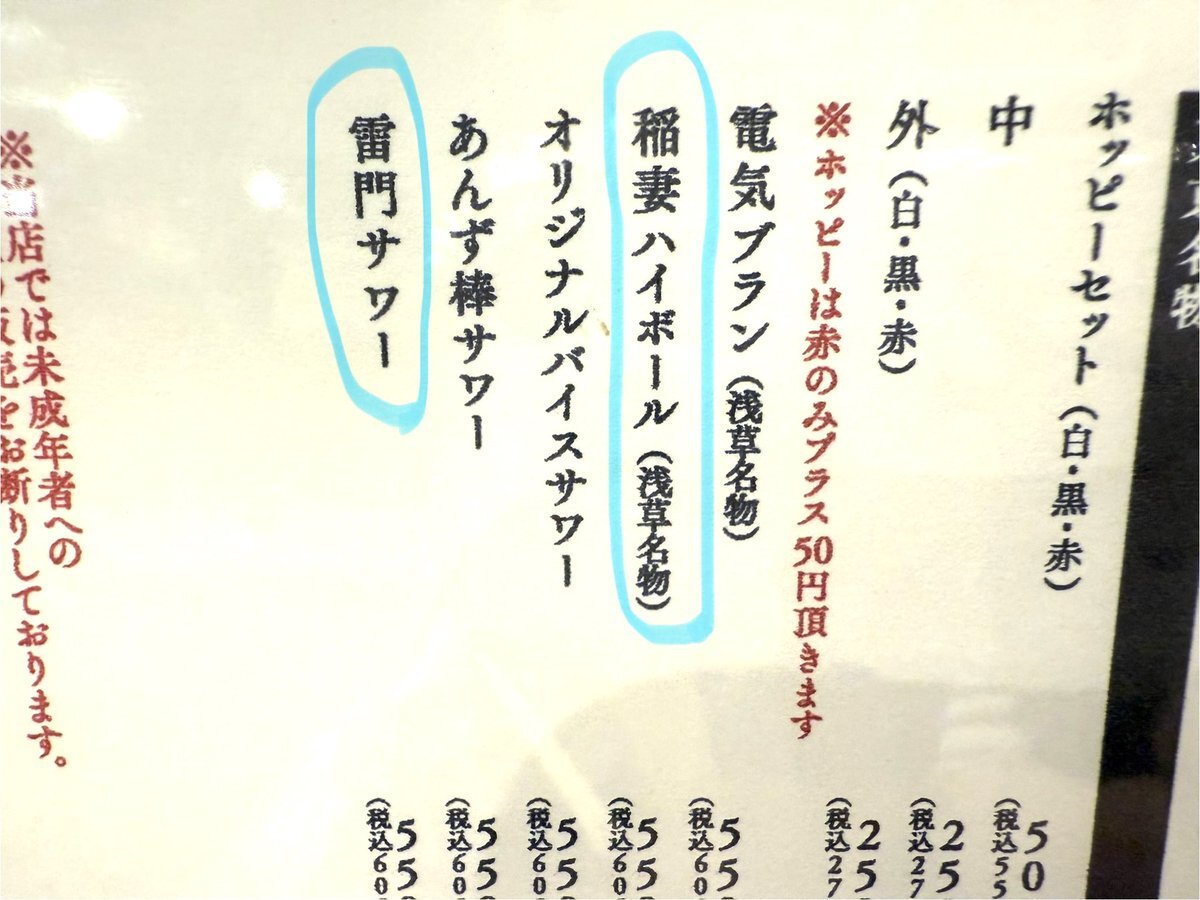 名物
ホッピーセット（白・黒・赤）
中
外（白・黒・赤）
※ホッピーは赤のみプラス50円頂きます
電気ブラン（浅草名物）
稲妻ハイボール（浅草名物）
オリジナルバイスサワー
あんず棒サワー
雷門サワー
※当店では未成年者への
販売をお断りしております。
50
（税込55
25
（税込27
25
（税込27
550
（税込60
550
（税込60
550
（税込60
550
（税込60
550
（税込60